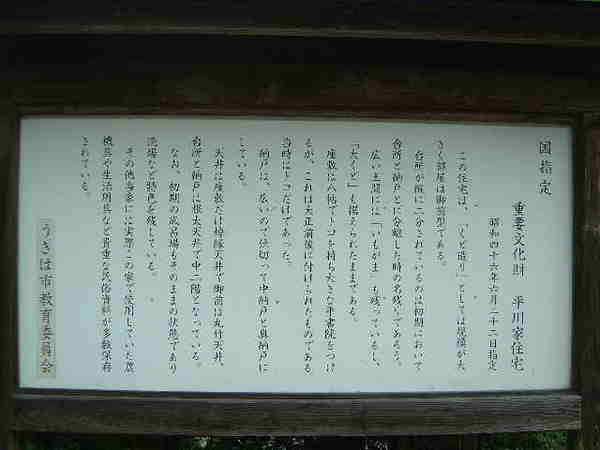 国指定
重要文化財 平川家住宅
昭和四十六年六月二十二日指定
この住宅は、「くど造り」としては規模が大
きく部屋は御前型である。
台所が縦に二分されているのは初期において
台所と納戸とに分離した時の名残りであろう。
広い土間には「いもがま」も残っているし、
「大くど」も据えられたままである。
座敷は八帖でトコを持ち大きな平書院をつけ
るが、これは大正前後に付けられたものである
当時はトコだけであった。
納戸は、広いので仕切って中納戸と奥納戸に
している。
天井は座敷だけ棹縁天井で御前は丸竹天井、
台所と納戸は根太天井で中二階となっている。
なお、初期の風呂場もそのままの状態であり
洗場など特色を残している。
その他当家には実際この家で使用していた農
機具や生活用具など貴重な民俗資料が多数保存
されている。
うきは市教育委員会